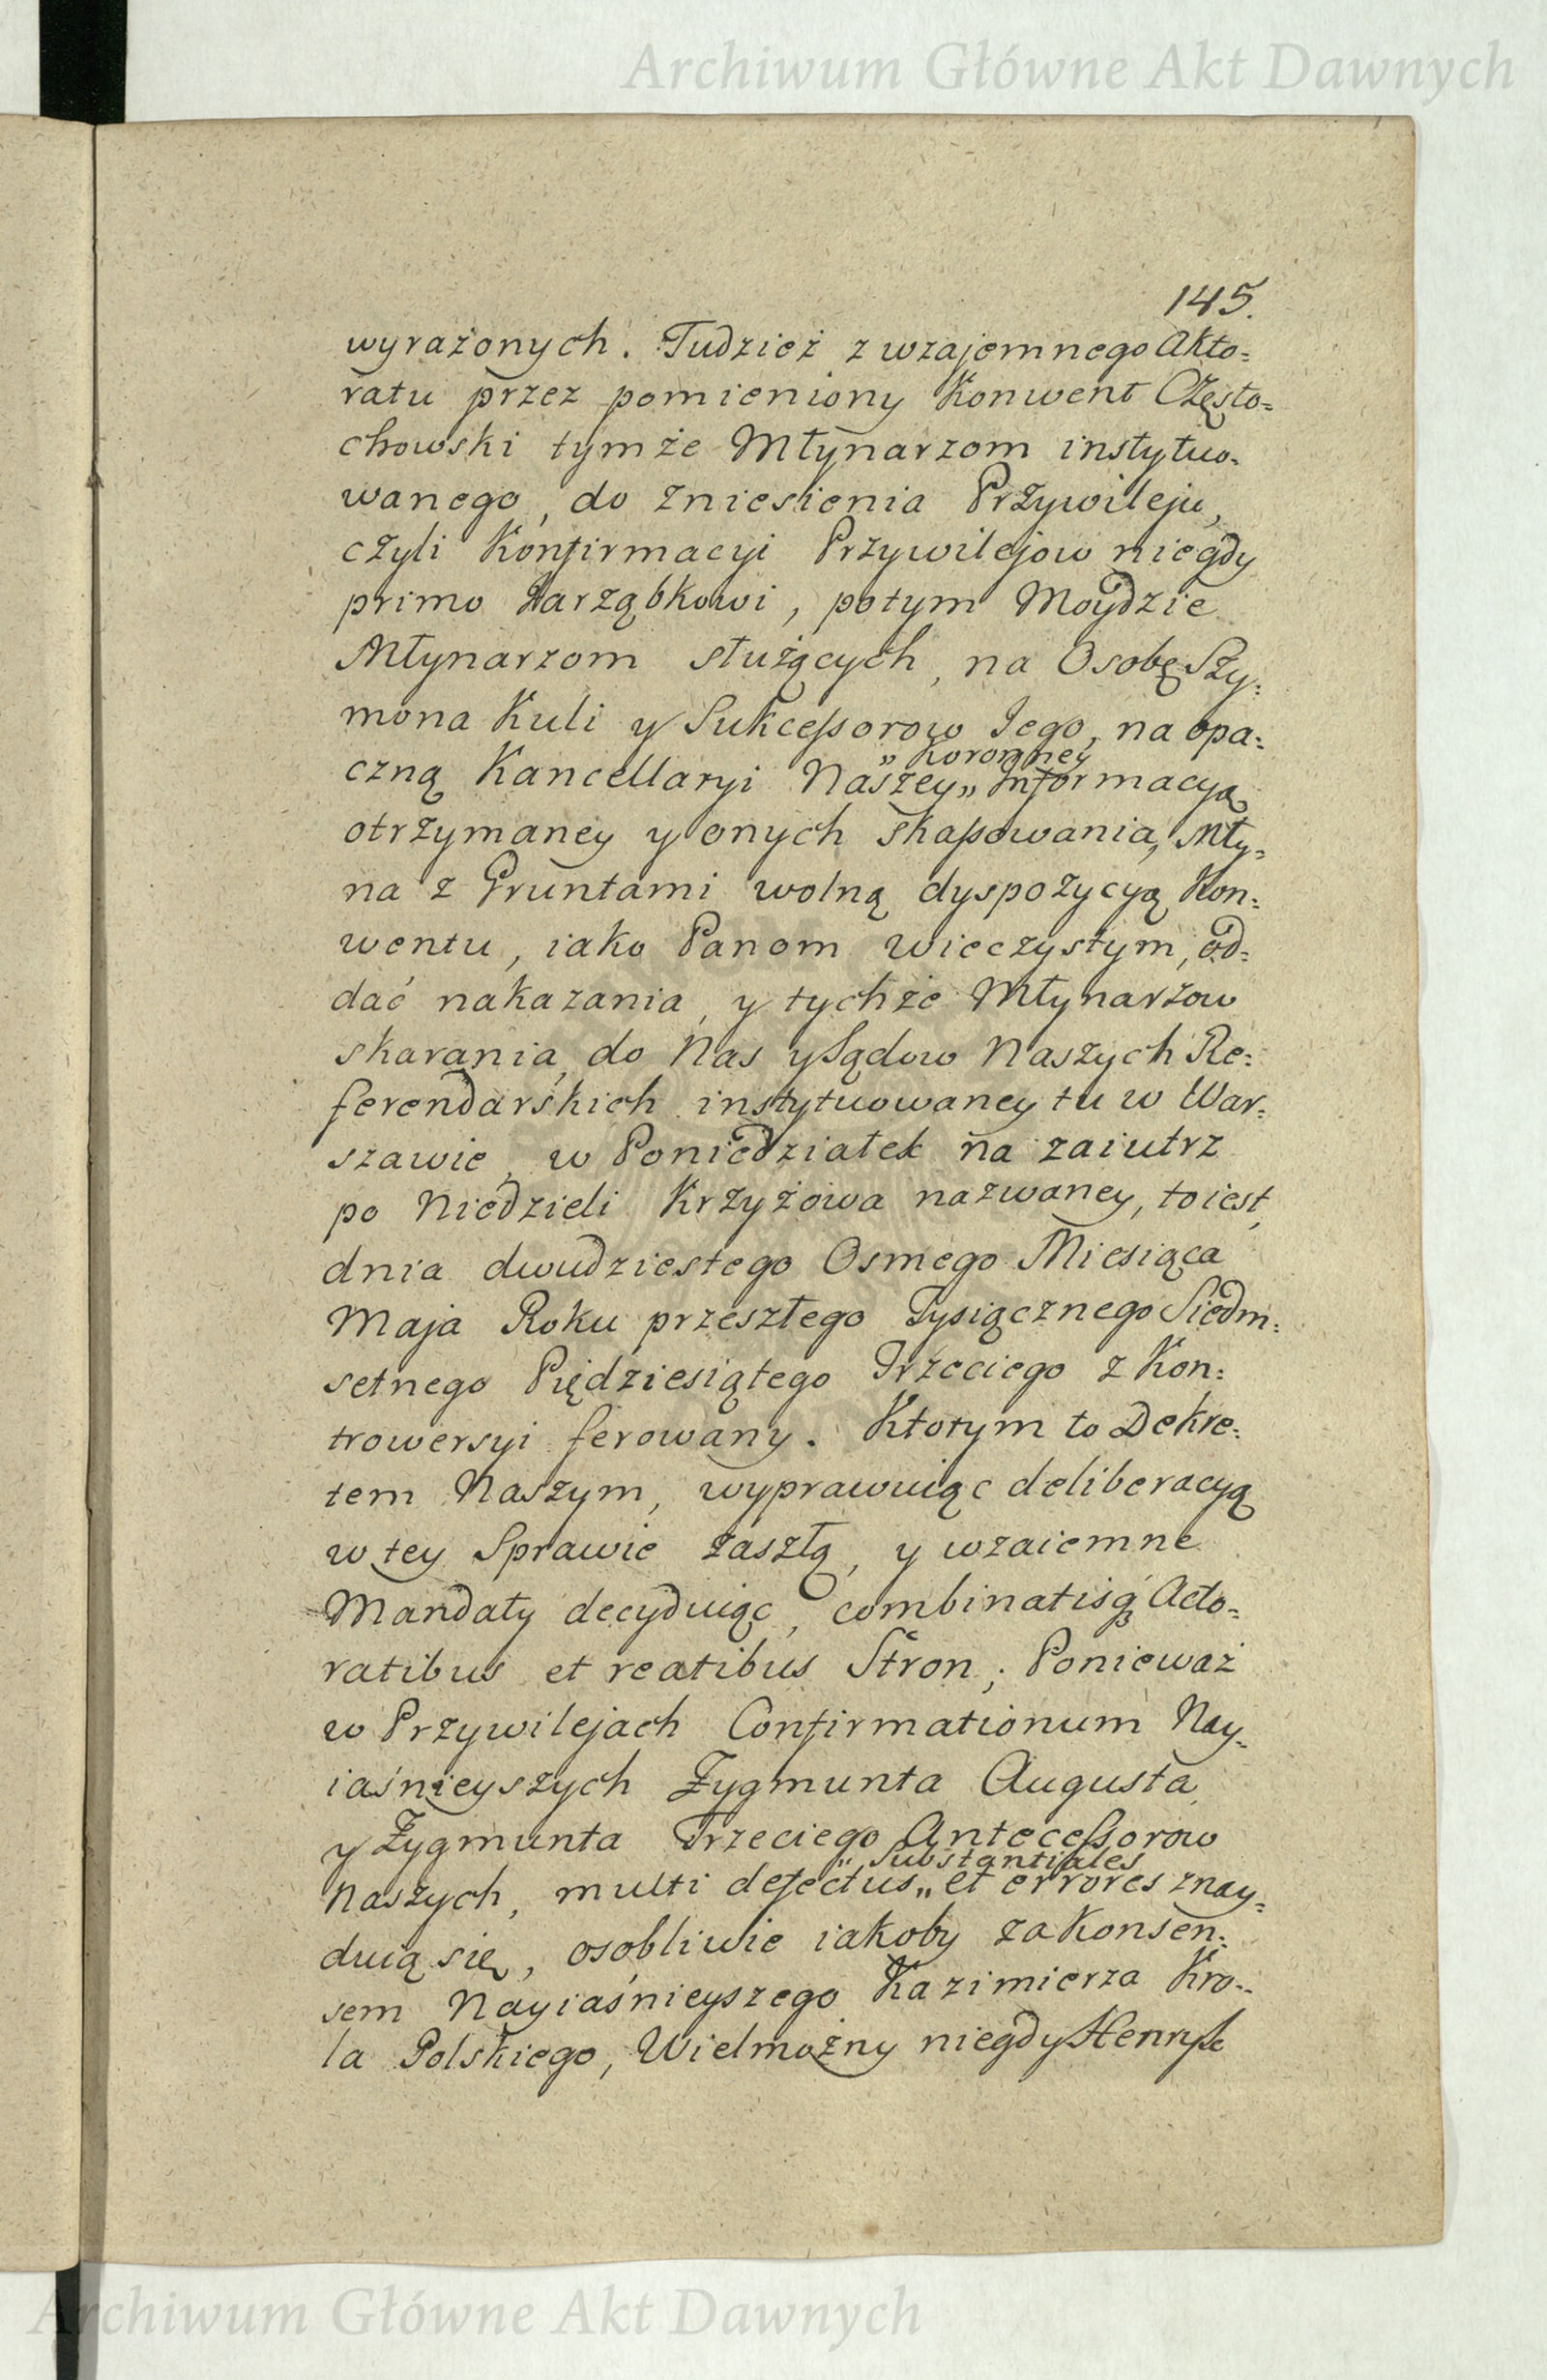 Archiwum Główne Akt Dawnych
145.
wyrażonych. Tudzież z wzajemnego Akto=
ratu przez pomieniony Konwent Często=
chowski tymże Młynarzom instytuo=
wanego, do zniesienia Przywileju,
czyli Konfirmacyi Przywilejow niegdy
primo Jarząbkowi, potym Moydzie
Młynarzom służących, na Osobę Szy=
mona Kuli y Sukceſsorow Jego, na opa=
„ Koronney
czną Kancellaryi Naszey „ Informacyą
otrzymaney y onych skaſsowania, Mły=
na z Gruntami wolną dyspozycyą Kon=
wentu, iako Panom wieczystym, od=
dać nakazania, y tychże Młynarzow
skarania, do Nas y Sądow Naszych Re=
ferendarskich instytuowaney tu w War=
szawie, w Poniedziałek na zaiutrz
po Niedzieli Krzyżowa nazwaney, to iest,
dnia dwudziestego Osmego Miesiąca
Maja Roku przeszłego Tysiącznego Siedm=
setnego Piędziesiątego Trzeciego z Kon=
trowersyi ferowany. Ktorym to Dekre=
tem Naszym, wyprawuiąc deliberacyą
w tey Sprawie zaszłą, y wzaiemne
Mandaty decyduiąc, combinatisq Acto=
ratibus et reatibus Stron; Ponieważ
w Przywilejach Confirmationum Nay=
iaśnieyszych Zygmunta Augusta
y Zygmunta Trzeciego Anteceſsorow
„ Substantiales
Naszych, multi defectus „ et errores znay=
duią się, osobliwie iakoby za Konsen=
sem Nayiaśnieyszego Kazimierza Kro=
la Polskiego, Wielmożny niegdy Henryk
Archiwum Główne Akt Dawnych